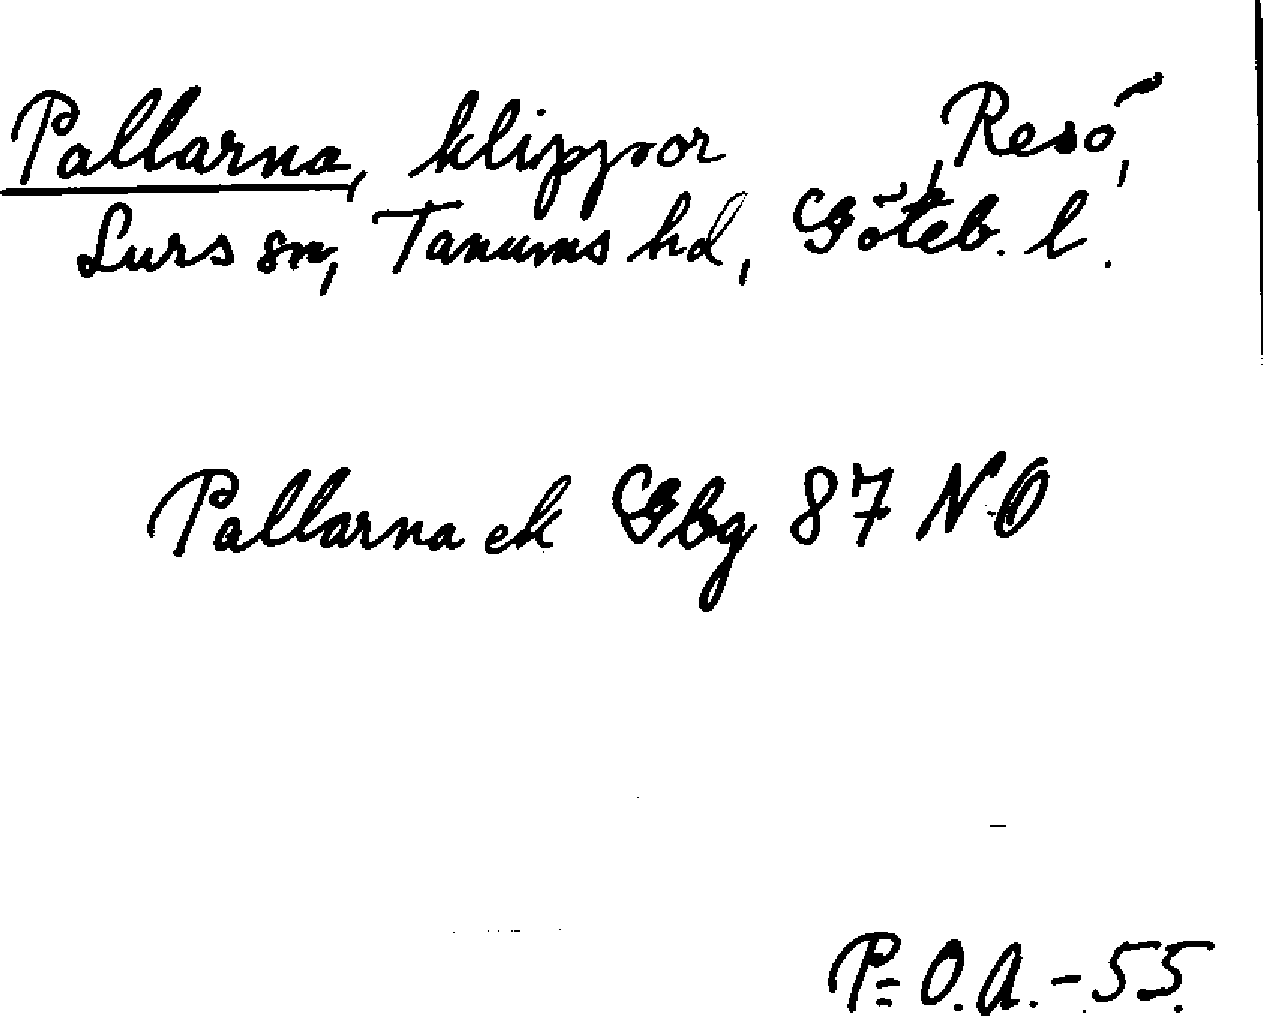 Pallarna, klippor, Resö,
Lurs sn, Tanums hd, Göteb. l.
Pallarna ek Gbg 87 NO
P-O.A.-55.